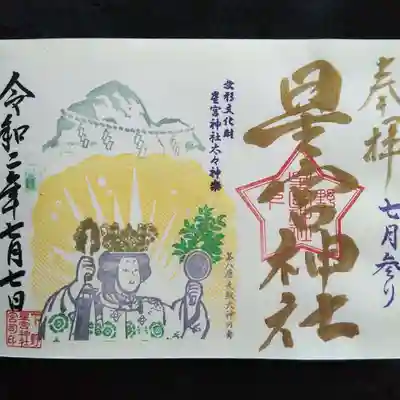 奉拝
七月参り
星宮神社
無形文化財
星宮神社太々神楽
令和二年七月七日